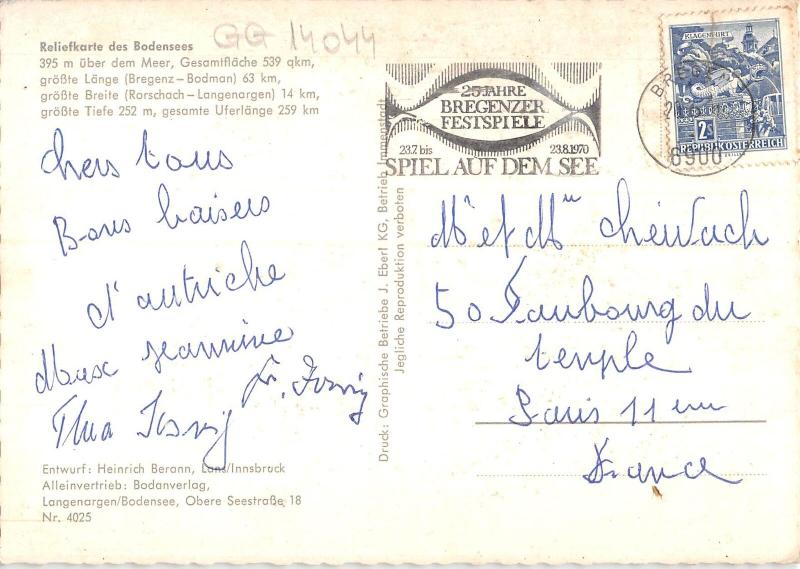 GG 14044
Reliefkarte des Bodensees
395 m über dem Meer, Gesamtfläche 539 qkm,
größte Länge (Bregenz – Bodman) 63 km,
größte Breite (Rorschach – Langenargen) 14 km,
größte Tiefe 252 m, gesamte Uferlänge 259 km
chers tous
Bons baisers
d'autriche
Max Jeannine
Entwurf: Heinrich Berann, Lans/Innsbruck
Alleinvertrieb: Bodanverlag,
Langenargen/Bodensee, Obere Seestraße 18
Nr. 4025
Druck: Graphische Betriebe J. Eberl KG, Betrieb Immenstadt
Jegliche Reproduktion verboten
25 JAHRE
BREGENZER
FESTSPIELE
23.7. bis 23.8.1970
SPIEL AUF DEM SEE
BREGENZ
6900
KLAGENFURT
2 S
REPUBLIK ÖSTERREICH
Mr et Mme
50 Faubourg du
temple
Paris 11 em
France